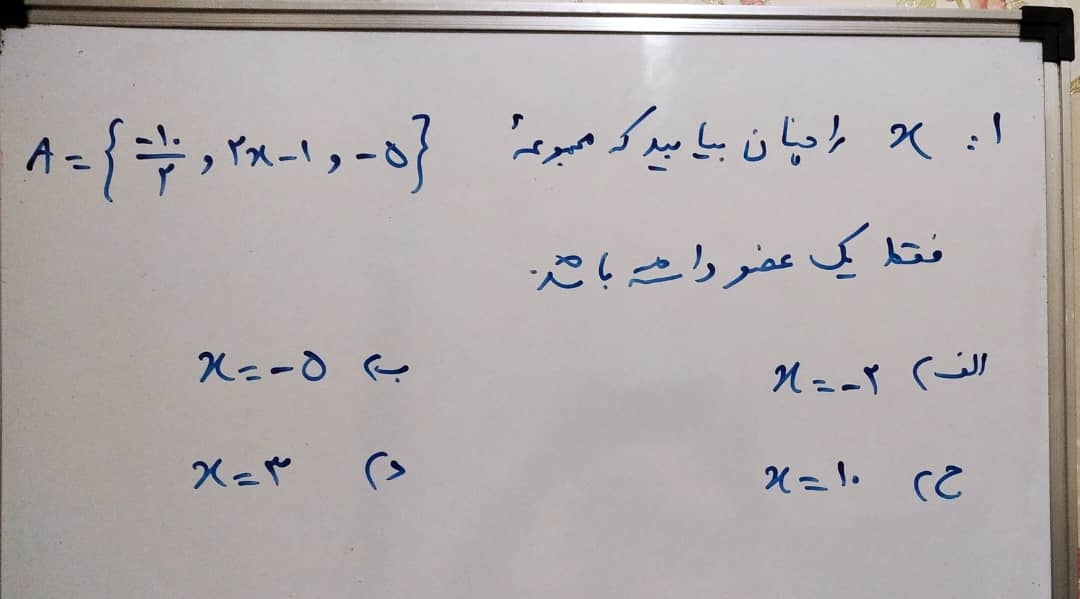 ۱: x را چنان بیابید که مجموعهٔ A = {-۱۰/۲ , ۲x-۱ , -۵}
فقط یک عضو داشته باشد.
الف) x=-۲ ب) x=-۵
ج) x=۱۰ د) x=۳